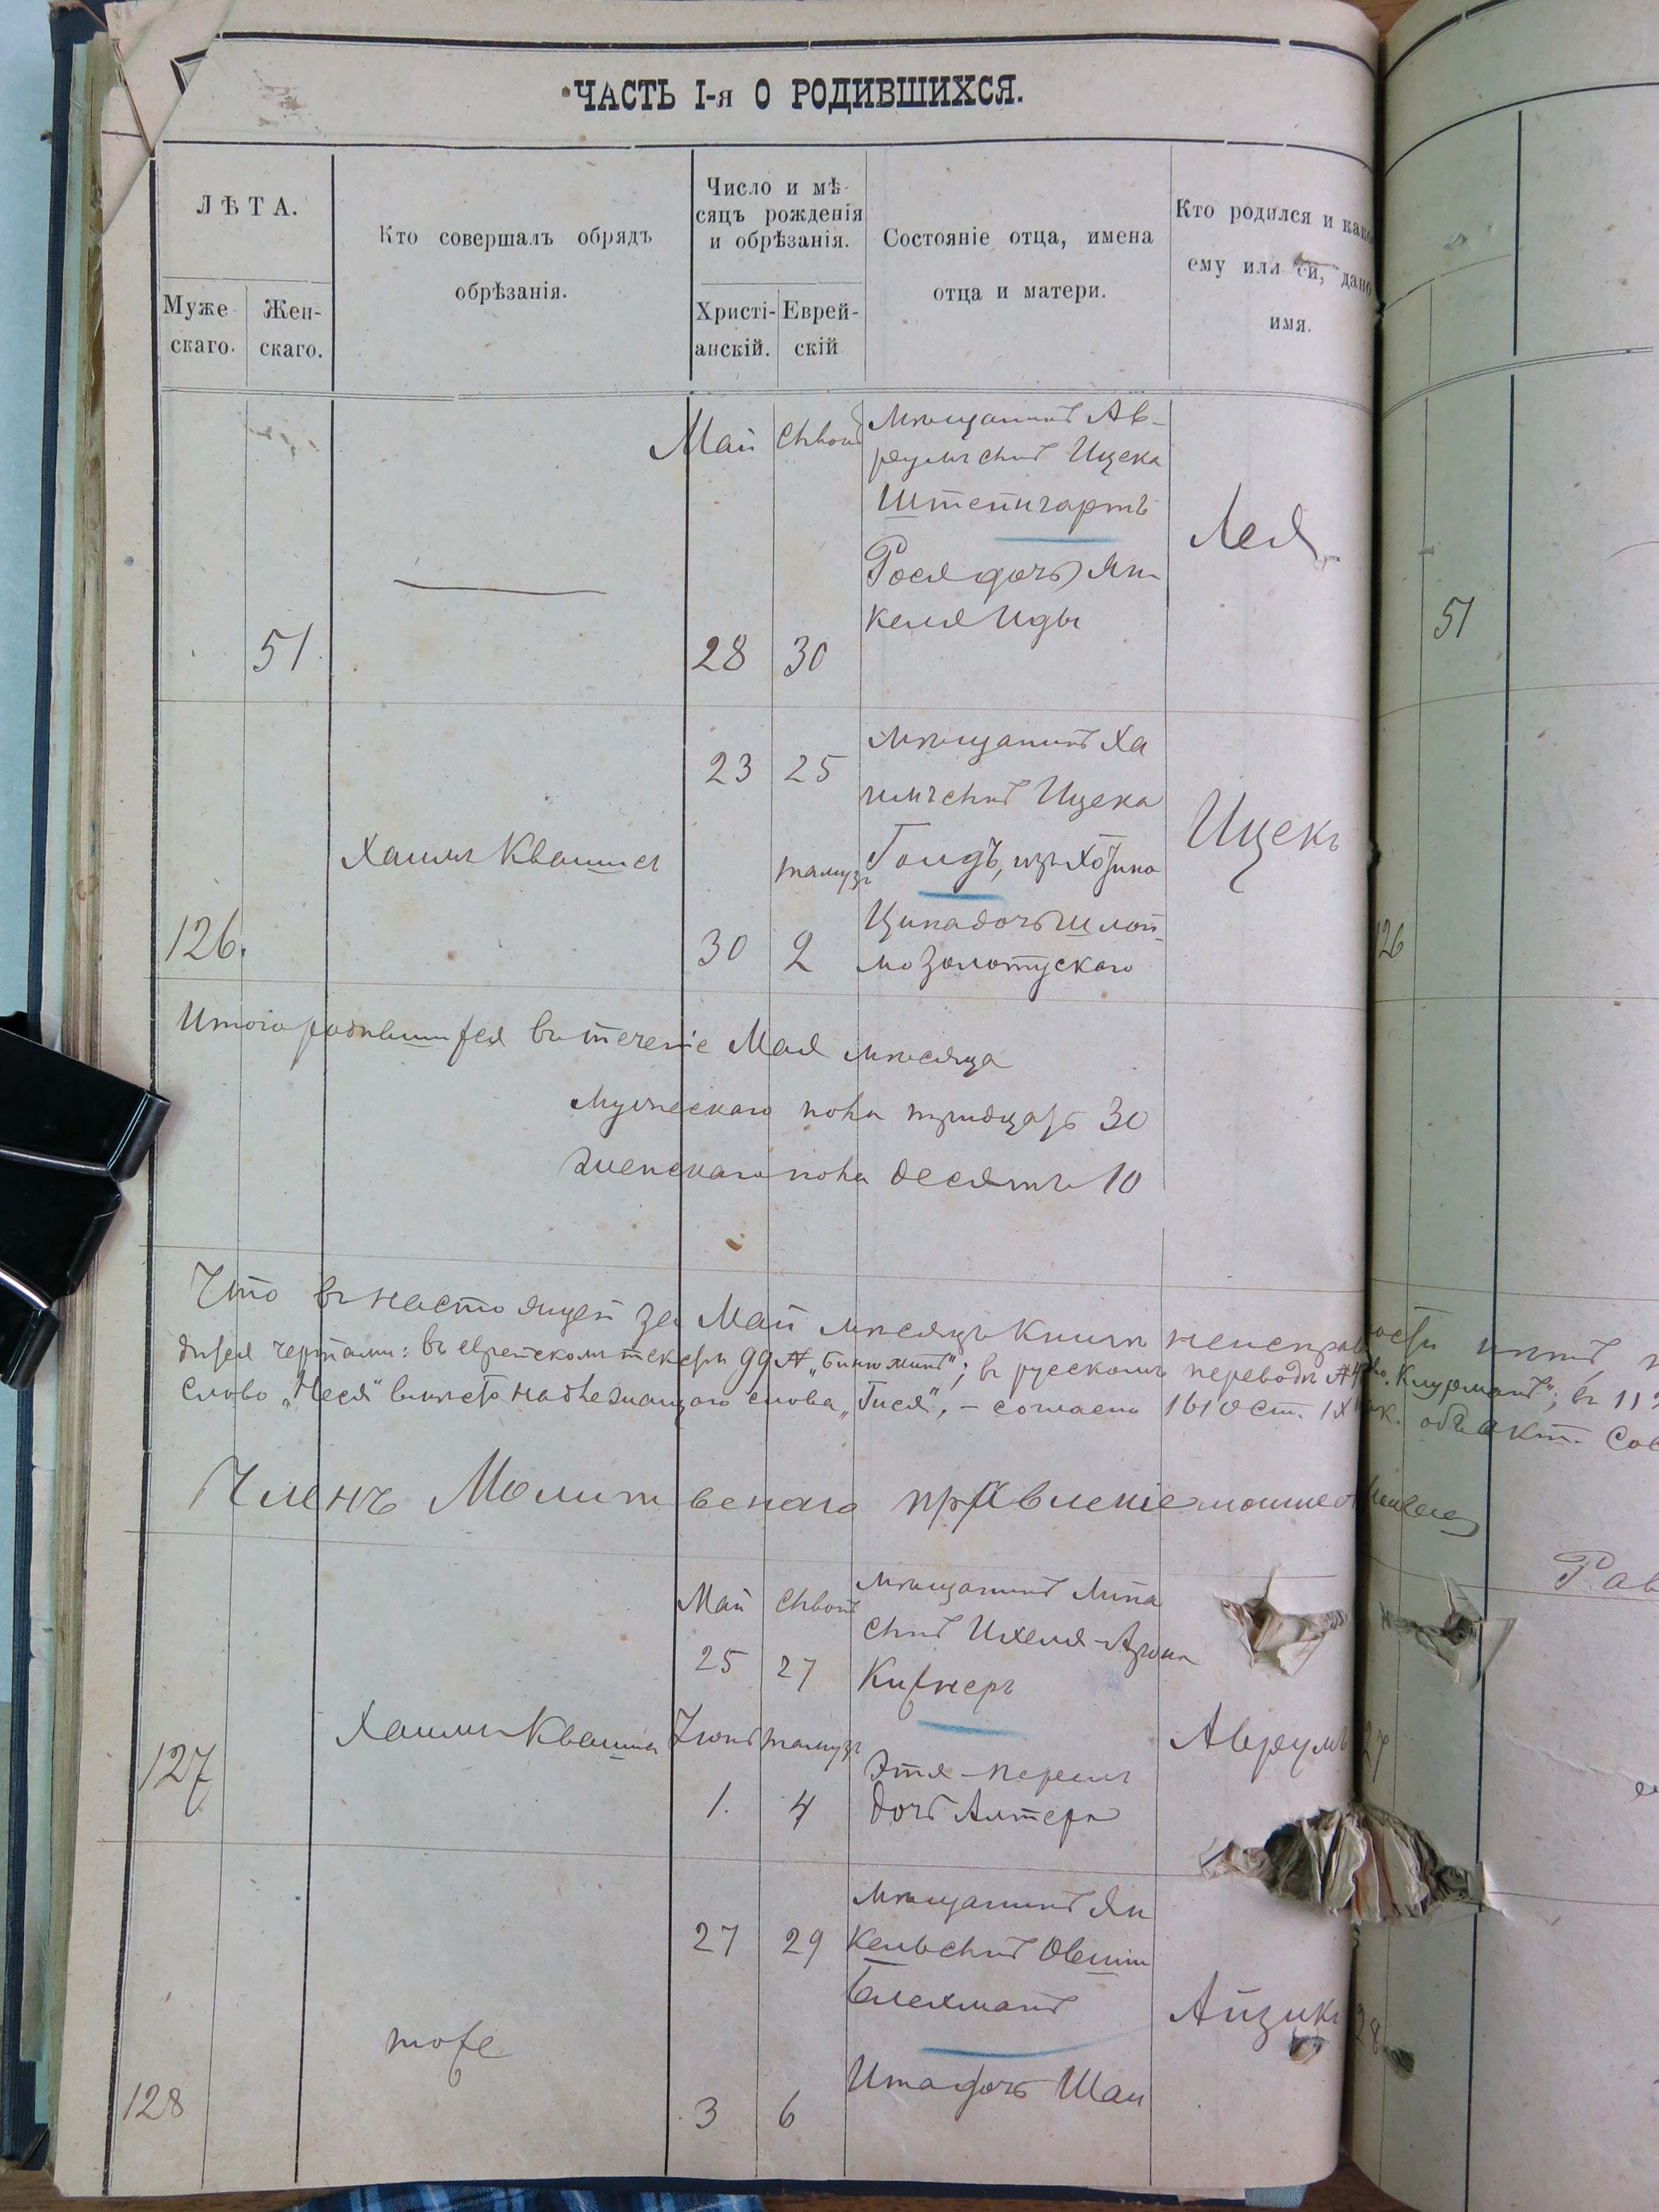 ЧАСТЬ I-я О РОДИВШИХСЯ.
ЛѢТА.
Муже
скаго.
Жен-
скаго.
Кто совершалъ обрядъ
обрѣзанія.
Число и мѣ-
сяцъ рожденія
и обрѣзанія.
Христі-
анскій.
Еврей-
скій
Состояніе отца, имена
отца и матери.
Кто родился и како
ему или ей, дано
имя.
51
Май
28
30
Мѣщанинъ Ав-
румъ сынъ Ицека
Штенгартъ
Рося дочь Ян
келя Иды
Лея
51
126.
Хаимъ Квашнъ
23
25
тамузъ
30
2
Мѣщанинъ Ха
имъ сынъ Ицека
Гоидъ, изъ
Ципа дочь Шлой
мо Золотускаго
Ицекъ
126
Итого родившихся въ теченіе Мая мѣсяца
мужескаго пола тридцать 30
женскаго пола десять 10
Что въ настоящей за Май мѣсяцъ книгѣ
чертами: въ еврейскомъ текстѣ 99 № въ русскомъ переводѣ
слово „Неся" вмѣсто надлежащаго слова „Гися", – согласно 1610 ст. IX
Членъ Молитвенаго правленіе
127
Хаимъ Квашна
Май
25
27
Іюнь
тамузъ
1.
4
Мѣщанинъ Липа
сынъ Ихеля-Арона
Китнеръ
Этя-Перель
дочь Алтера
Аврумъ
27
128
тоже
27
29
3
6
Мѣщанинъ Ян
кель сынъ Овшія
Блехманъ
Ита дочь Шаи
Айзикъ
28